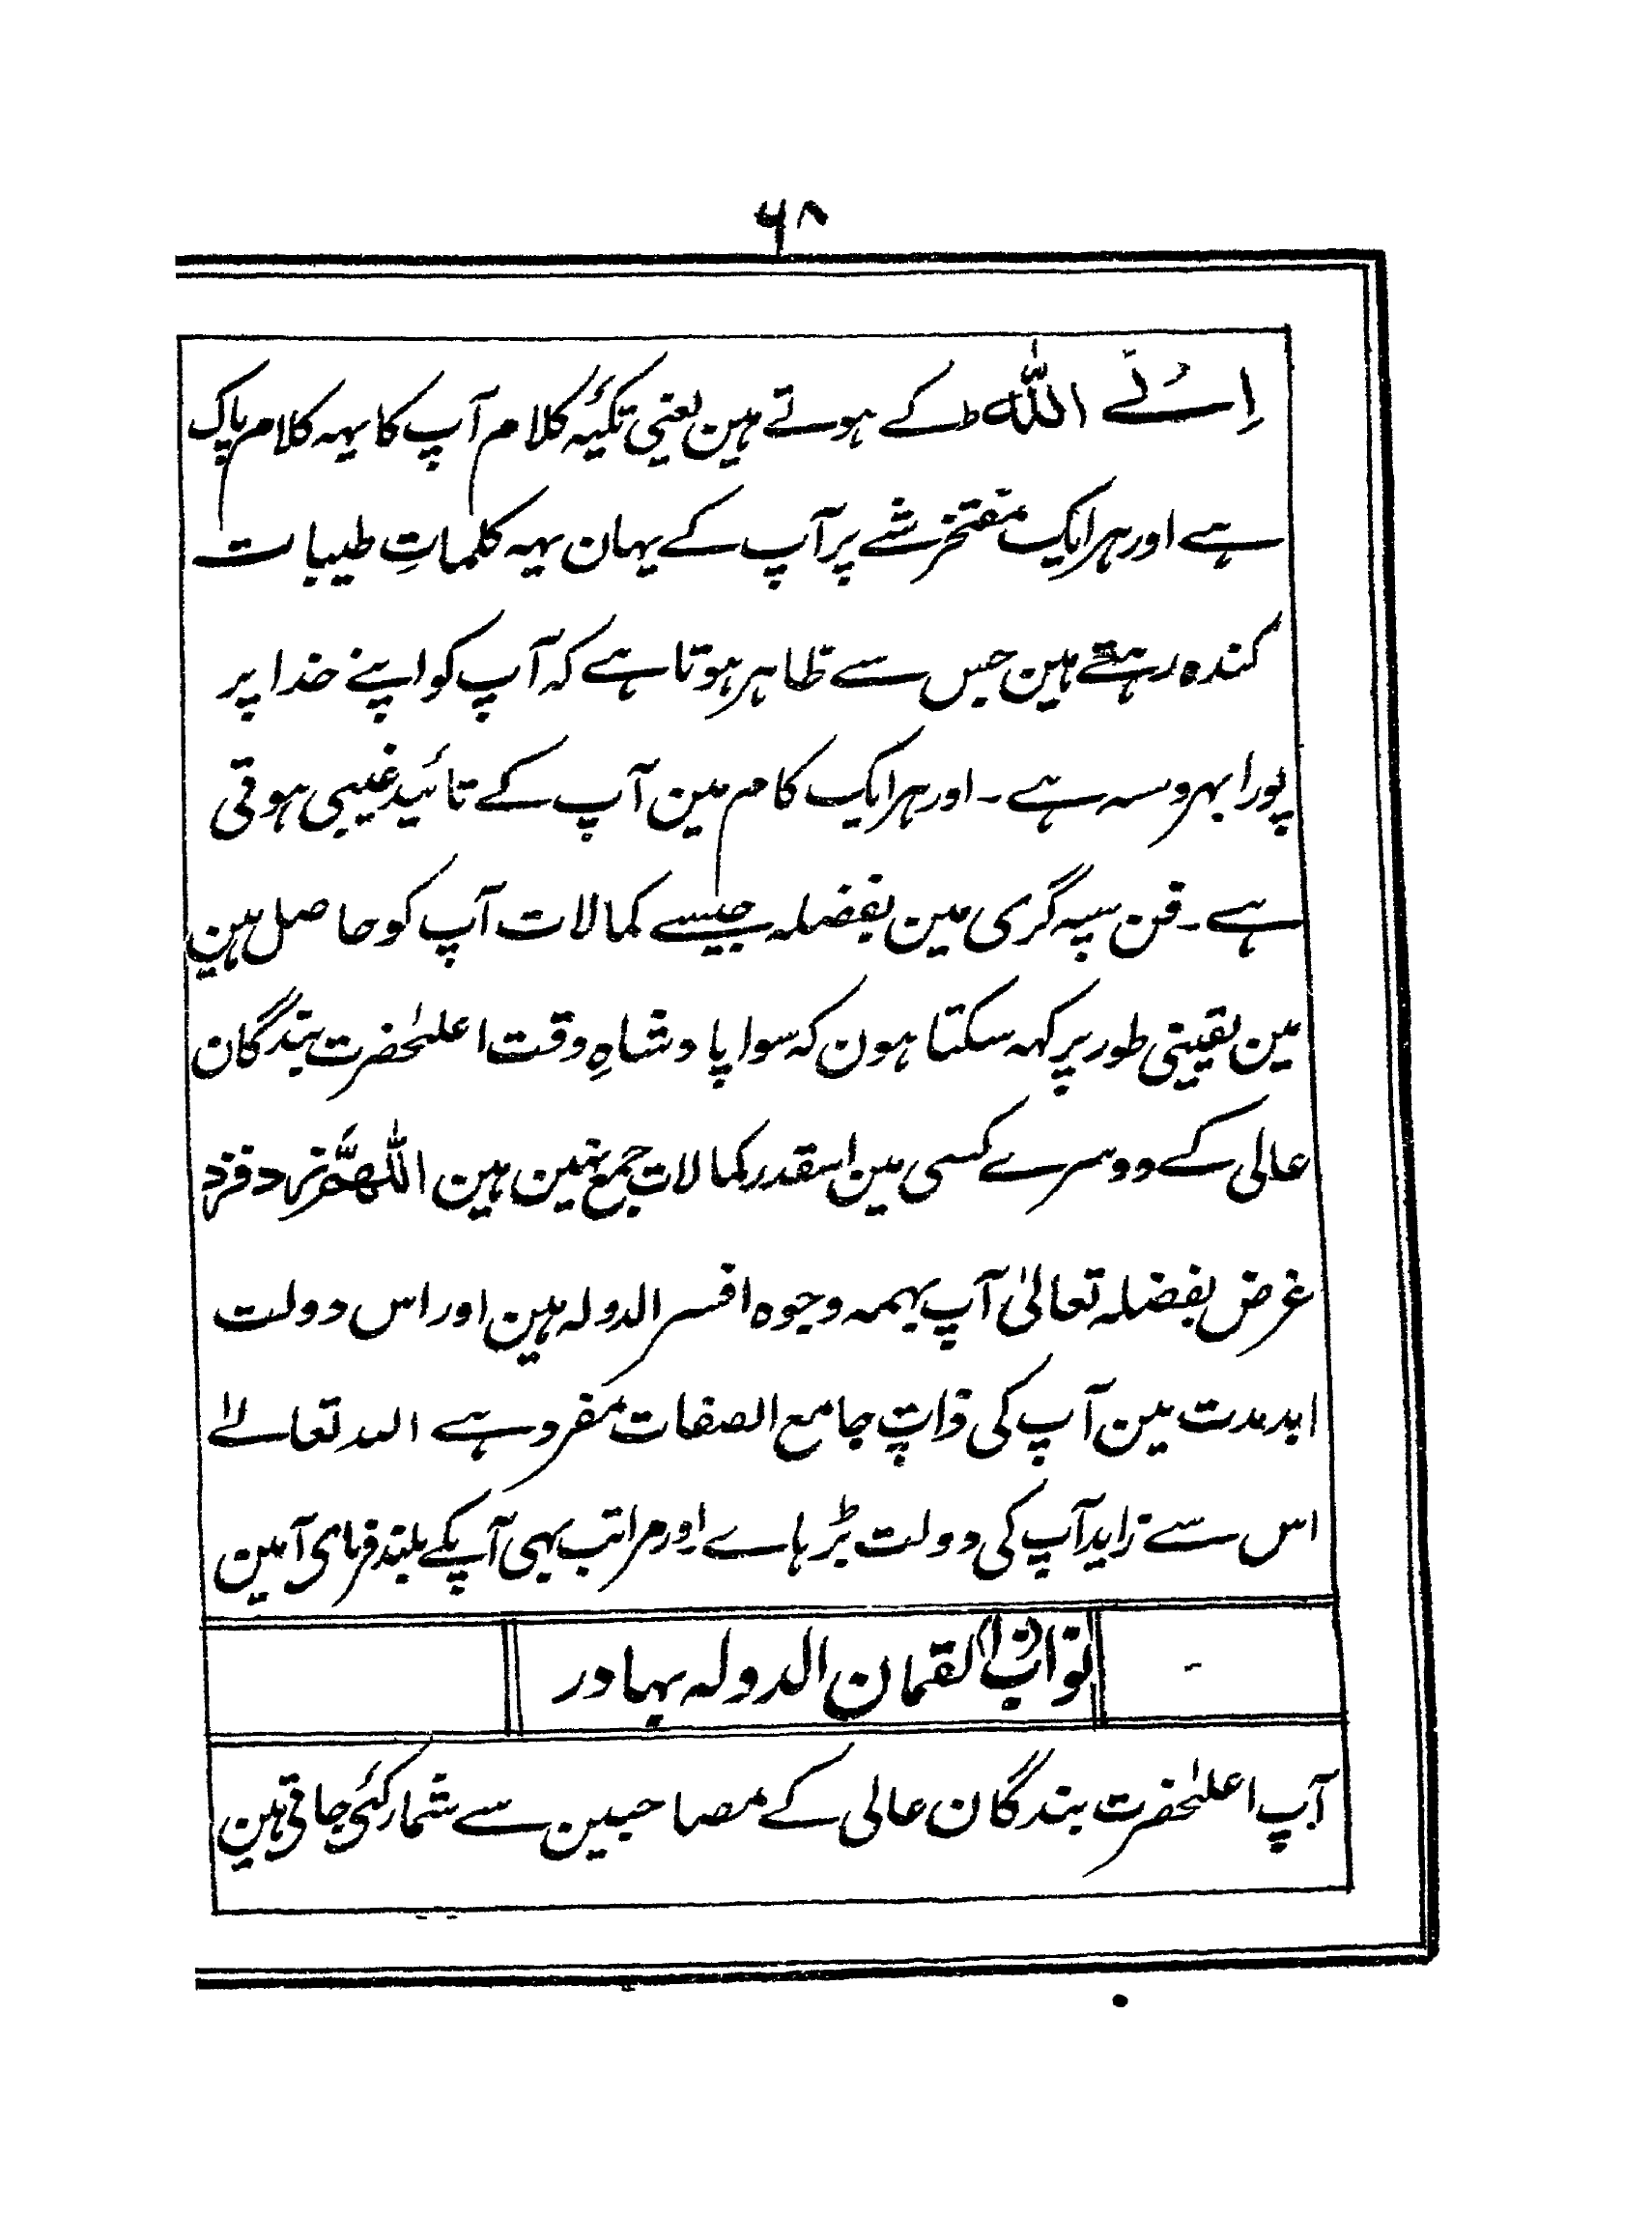 ۶۸
اِلٰے اللّٰہ ط کے ہوتے ہین یعنی تکیۂ کلام آپ کا یہہ کلام پاک
ہے اور ہر ایک مفتخر شے پر آپ کے یہان یہہ کلماتِ طیبات
کندہ رہتے ہین جس سے ظاہر ہوتا ہے کہ آپ کو اپنے خدا پر
پورا بہروسہ ہے ۔ اور ہر ایک کام مین آپ کے تائید غیبی ہوتی
ہے ۔ فن سپہ گری مین بفضلہ جیسے کمالات آپ کو حاصل ہین
مین یقینی طور پر کہہ سکتا ہون کہ سوا پادشاہِ وقت اعلیٰحضرت بندگان
عالی کے دوسرے کسی مین اسقدر کمالات جمع نہین ہین اللّٰھمّ زد فزد
غرض بفضلہ تعالیٰ آپ بہمہ وجوہ افسر الدولہ ہین اور اس دولت
ابدمدت مین آپ کی ذاتِ جامع الصفات مفرد ہے اللہ تعالےٰ
اس سے زاید آپ کی دولت بڑہاے اور مراتب بہی آپکے بلند فرمای آمین
نواب لقمان الدولہ بہادر
آپ اعلیٰحضرت بندگان عالی کے مصاحبین سے شمار کئی جاتی ہین